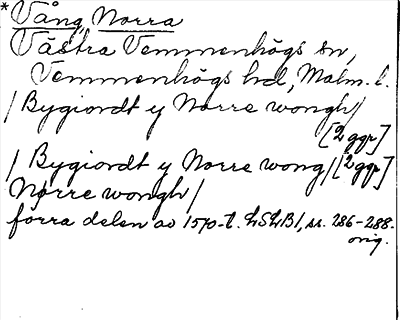 *Vång, Norra
Västra Vemmenhögs sn,
Vemmenhögs hd, Malm. l.
/Bygiordt y Norre wongh/
[2 ggr]
/Bygiordt y Norre wong/[2 ggr]
Nørre wongh/
förra delen av 1570-t. LSLB1, ss. 286-288.
orig.